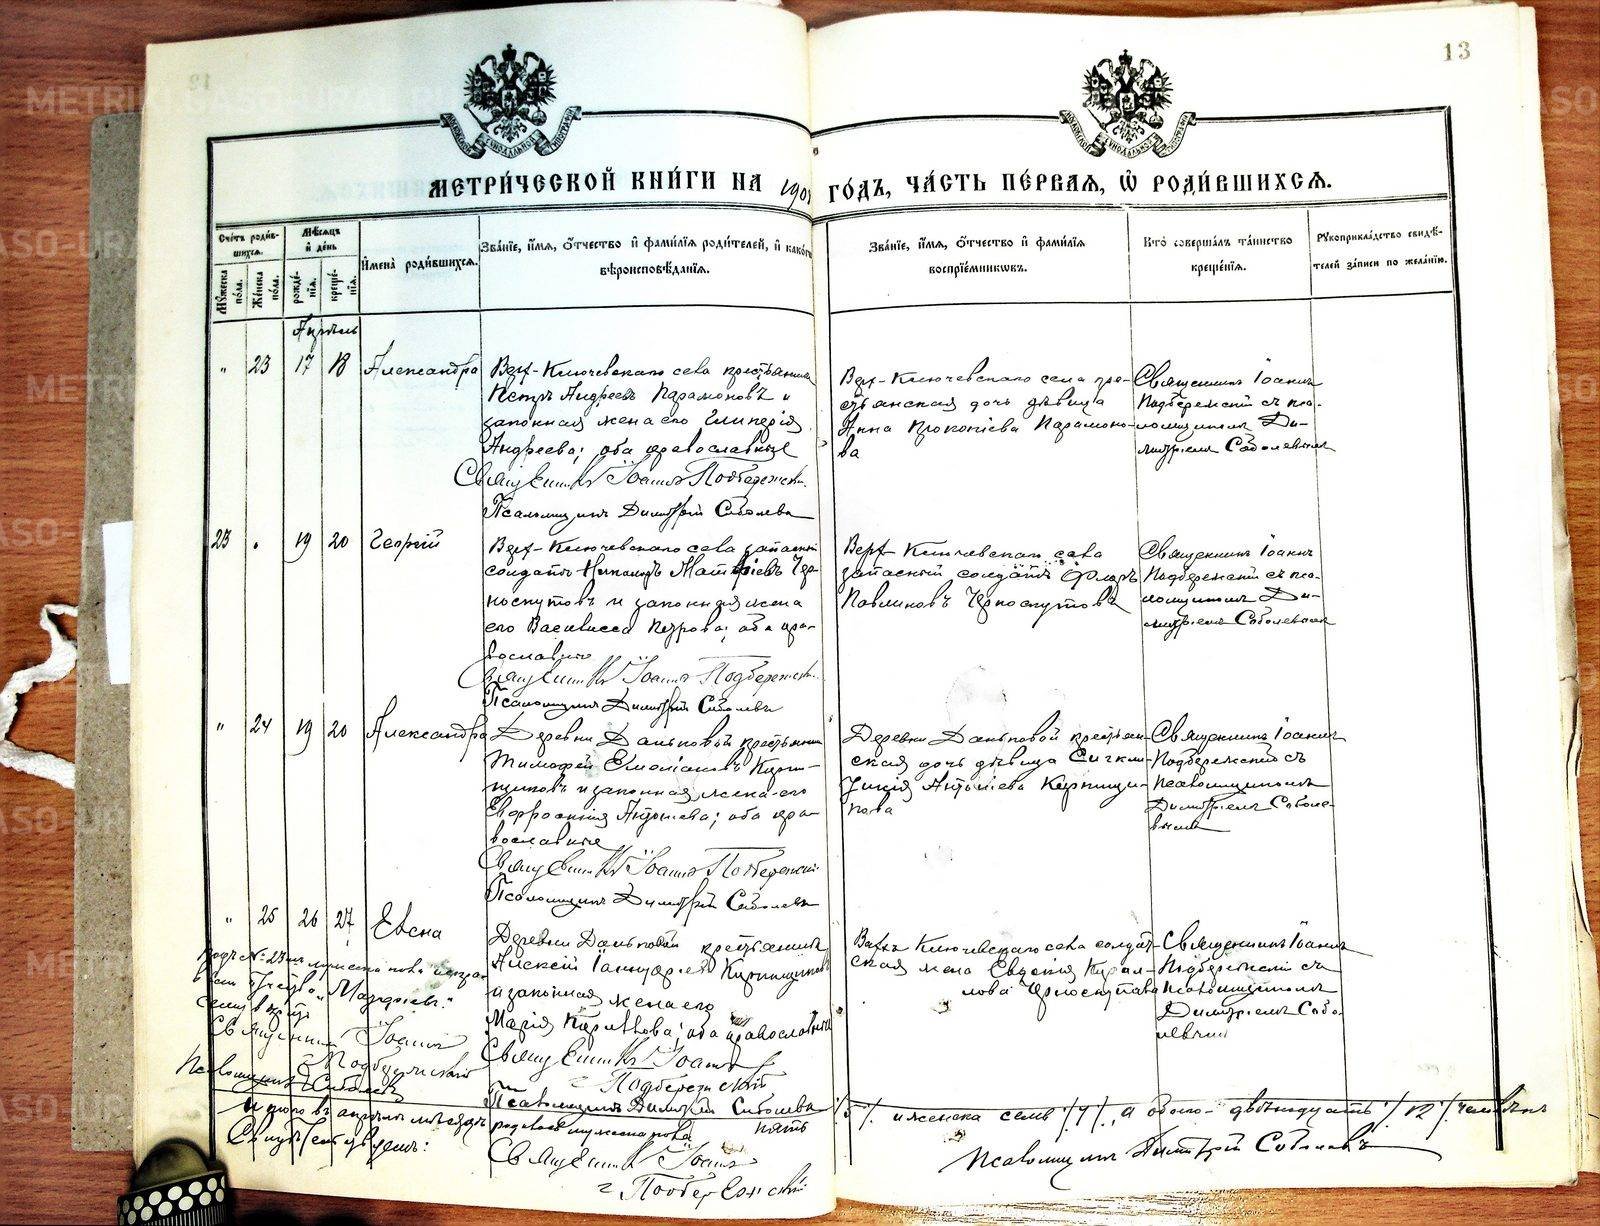 13
МЕТРИ́ЧЕСКОЙ КНИ́ГИ НА 1908 ГО́ДЪ, ЧА́СТЬ ПЕ́РВАЯ, Ѡ҆ РОДИ́ВШИХСЯ.
Сче́тъ роди́в-
шихся.
Мꙋ́жеска по́ла.
Же́нска по́ла.
Мѣ́сяцъ и҆ де́нь
рожде́-
нїя.
креще́-
нїя.
И҆мена̀ роди́вшихся.
Зва́нїе, и҆́мя, ѻ҆́тчество и҆ фами́лїя роди́телей, и҆ како́гѡ
вѣроисповѣ́данїя.
Зва́нїе, и҆́мя, ѻ҆́тчество и҆ фами́лїя
воспрїе́мникѡвъ.
Кто̀ соверша́лъ та́инство
креще́нїя.
Рꙋкоприкла́дство свидѣ́-
телей за́писи по жела́нїю.
Апрѣль
" 23 17 18 Александра
Верх-Ключевскаго села крестьянинъ
Петръ Андреевъ Парамоновъ и
законная жена его Гликерія
Андреева; оба православные
Священникъ Іоаннъ Подбережскій
Псаломщикъ Димитрій Соболевъ
Верх-Ключевскаго села кре-
стьянская дочь дѣвица
Анна Прокопіева Парамоно-
ва
Священникъ Іоаннъ
Подбережскій съ пса-
ломщикомъ Ди-
митріемъ Соболевымъ
23 " 19 20 Георгій
Верх-Ключевскаго села запасный
солдатъ Матѳіевъ Чер-
носкутовъ и законная жена
его Василисса Петрова; оба пра-
вославные
Священникъ Іоаннъ Подбережскій
Псаломщикъ Димитрій Соболевъ
Верх-Ключевскаго села
запасный солдатъ Флоръ
Павлиновъ Черноскутовъ
Священникъ Іоаннъ
Подбережскій съ пса-
ломщикомъ Ди-
митріемъ Соболевымъ
" 24 19 20 Александра
Деревни Даньковой крестьянинъ
Тимофей Емеліановъ Кирпи-
щиковъ и законная жена его
Евфросинія Антоніева; оба пра-
вославные
Священникъ Іоаннъ Подбережскій
Псаломщикъ Димитрій Соболевъ
Деревни Даньковой крестьян-
ская дочь дѣвица
Антоніева Кирпищи-
кова
Священникъ Іоаннъ
Подбережскій съ
псаломщикомъ
Димитріемъ Соболе-
вымъ
" 25 26 27 Елена
Деревни Даньковой крестьянинъ
Алексій Іаннуаріевъ Кирпищиковъ
и законная жена его
Марія; оба православные
Священникъ Іоаннъ
Подбережскій
Псаломщикъ Димитрій Соболевъ
Верхъ Ключевскаго села солдат-
ская жена Евдокія Кирил-
лова Черноскутова
Священникъ Іоаннъ
Подбережскій съ
псаломщикомъ
Димитріемъ Собо-
левымъ
подъ № 23 мужеска пола
отчество „Матѳіевъ."
Священникъ Іоаннъ
Подбережскій
Псаломщикъ Соболевъ
Итого въ апрѣлѣ мѣсяцѣ родилось мужеска пола пять /5/, и женска семь /7/, а обоего двѣнадцать /12/ человѣкъ
Свидѣтельствуемъ:
Священникъ Іоаннъ
Подбережскій
Псаломщикъ Димитрій Соболевъ